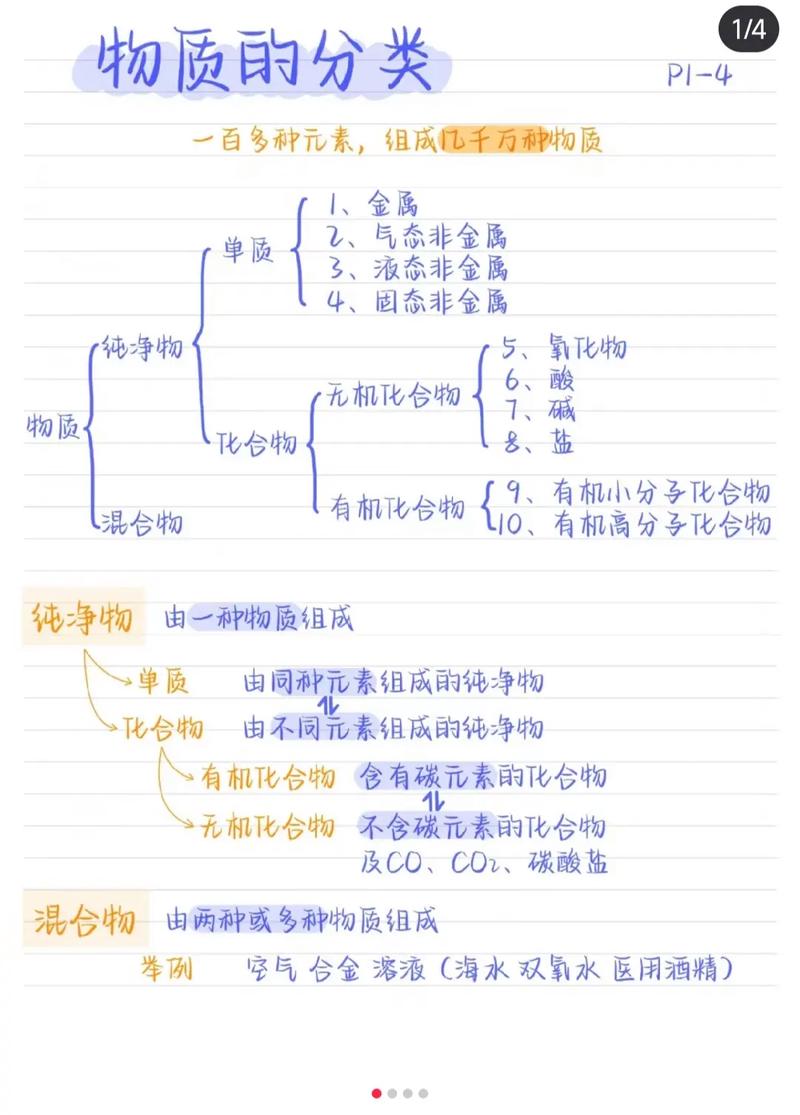 1/4
物质的分类
P1-4
一百多种元素，组成几千万种物质
1、金属
单质
2、气态非金属
3、液态非金属
4、固态非金属
纯净物
5、氧化物
6、酸
无机化合物
7、碱
物质
8、盐
化合物
9、有机小分子化合物
有机化合物
10、有机高分子化合物
混合物
纯净物 由一种物质组成
单质 由同种元素组成的纯净物
化合物 由不同元素组成的纯净物
有机化合物 含有碳元素的化合物
无机化合物 不含碳元素的化合物
及CO、CO₂、碳酸盐
混合物 由两种或多种物质组成
举例 空气 合金 溶液（海水 双氧水 医用酒精）